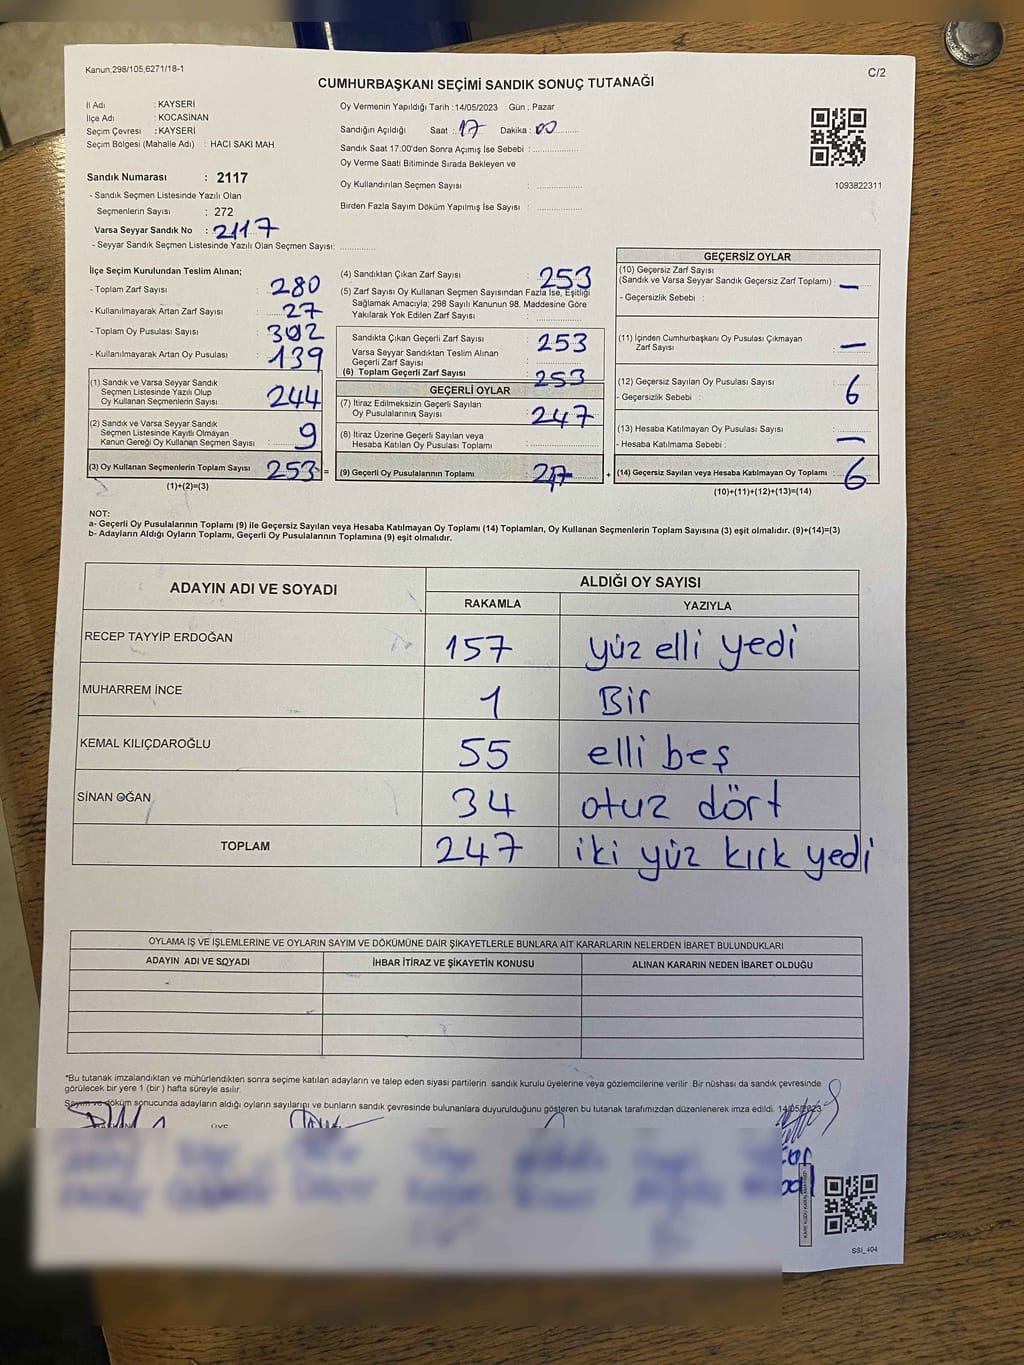 Kanun,298/105,6271/18-1
C/2
CUMHURBAŞKANI SEÇİMİ SANDIK SONUÇ TUTANAĞI
İl Adı : KAYSERİ
İlçe Adı : KOCASİNAN
Seçim Çevresi : KAYSERİ
Seçim Bölgesi (Mahalle Adı) : HACI SAKİ MAH.
Sandık Numarası : 2117
- Sandık Seçmen Listesinde Yazılı Olan
Seçmenlerin Sayısı : 272
Varsa Seyyar Sandık No : 2117
- Seyyar Sandık Seçmen Listesinde Yazılı Olan Seçmen Sayısı: ............
Oy Vermenin Yapıldığı Tarih :14/05/2023 Gün : Pazar
Sandığın Açıldığı Saat : 17 Dakika : 00
Sandık Saat 17:00'den Sonra Açımış İse Sebebi : ............
Oy Verme Saati Bitiminde Sırada Bekleyen ve
Oy Kullandırılan Seçmen Sayısı : ............
Birden Fazla Sayım Döküm Yapılmış İse Sayısı : ............
1093822311
İlçe Seçim Kurulundan Teslim Alınan;
- Toplam Zarf Sayısı : 280
- Kullanılmayarak Artan Zarf Sayısı : 27
- Toplam Oy Pusulası Sayısı : 392
- Kullanılmayarak Artan Oy Pusulası : 139
(1) Sandık ve Varsa Seyyar Sandık
Seçmen Listesinde Yazılı Olup
Oy Kullanan Seçmenlerin Sayısı : 244
(2) Sandık ve Varsa Seyyar Sandık
Seçmen Listesinde Kayıtlı Olmayan
Kanun Gereği Oy Kullanan Seçmen Sayısı : 9
(3) Oy Kullanan Seçmenlerin Toplam Sayısı : 253 =
(1)+(2)=(3)
(4) Sandıktan Çıkan Zarf Sayısı : 253
(5) Zarf Sayısı Oy Kullanan Seçmen Sayısından Fazla İse, Eşitliği
Sağlamak Amacıyla; 298 Sayılı Kanunun 98. Maddesine Göre
Yakılarak Yok Edilen Zarf Sayısı : ............
Sandıkta Çıkan Geçerli Zarf Sayısı : 253
Varsa Seyyar Sandıktan Teslim Alınan
Geçerli Zarf Sayısı : ............
(6) Toplam Geçerli Zarf Sayısı : 253
GEÇERLİ OYLAR
(7) İtiraz Edilmeksizin Geçerli Sayılan
Oy Pusulalarının Sayısı : 247
(8) İtiraz Üzerine Geçerli Sayılan veya
Hesaba Katılan Oy Pusulası Toplamı : ............
(9) Geçerli Oy Pusulalarının Toplamı : 247 +
GEÇERSİZ OYLAR
(10) Geçersiz Zarf Sayısı
(Sandık ve Varsa Seyyar Sandık Geçersiz Zarf Toplamı) : —
- Geçersizlik Sebebi :
(11) İçinden Cumhurbaşkanı Oy Pusulası Çıkmayan
Zarf Sayısı : —
(12) Geçersiz Sayılan Oy Pusulası Sayısı : 6
- Geçersizlik Sebebi :
(13) Hesaba Katılmayan Oy Pusulası Sayısı : —
- Hesaba Katılmama Sebebi :
(14) Geçersiz Sayılan veya Hesaba Katılmayan Oy Toplamı : 6
(10)+(11)+(12)+(13)=(14)
NOT:
a- Geçerli Oy Pusulalarının Toplamı (9) ile Geçersiz Sayılan veya Hesaba Katılmayan Oy Toplamı (14) Toplamları, Oy Kullanan Seçmenlerin Toplam Sayısına (3) eşit olmalıdır. (9)+(14)=(3)
b- Adayların Aldığı Oyların Toplamı, Geçerli Oy Pusulalarının Toplamına (9) eşit olmalıdır.
ADAYIN ADI VE SOYADI
ALDIĞI OY SAYISI
RAKAMLA YAZIYLA
RECEP TAYYİP ERDOĞAN 157 yüz elli yedi
MUHARREM İNCE 1 Bir
KEMAL KILIÇDAROĞLU 55 elli beş
SİNAN OĞAN 34 otuz dört
TOPLAM 247 iki yüz kırk yedi
OYLAMA İŞ VE İŞLEMLERİNE VE OYLARIN SAYIM VE DÖKÜMÜNE DAİR ŞİKAYETLERLE BUNLARA AİT KARARLARIN NELERDEN İBARET BULUNDUKLARI
ADAYIN ADI VE SOYADI İHBAR İTİRAZ VE ŞİKAYETİN KONUSU ALINAN KARARIN NEDEN İBARET OLDUĞU
*Bu tutanak imzalandıktan ve mühürlendikten sonra seçime katılan adayların ve talep eden siyasi partilerin sandık kurulu üyelerine veya gözlemcilerine verilir. Bir nüshası da sandık çevresinde
görülecek bir yere 1 (bir) hafta süreyle asılır.
Sayım ve döküm sonucunda adayların aldığı oyların sayılarını ve bunların sandık çevresinde bulunanlara duyurulduğunu gösteren bu tutanak tarafımızdan düzenlenerek imza edildi. 14/05/2023
SSI_404